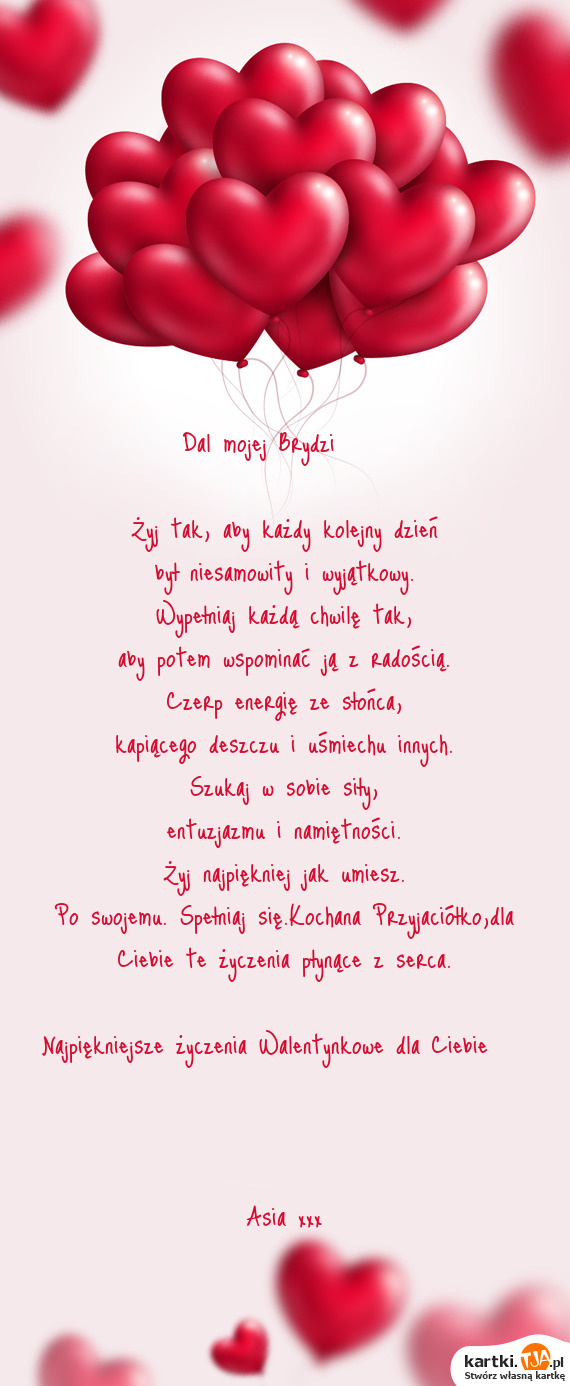 Dal mojej Brydzi
Żyj tak, aby każdy kolejny dzień
był niesamowity i wyjątkowy.
Wypełniaj każdą chwilę tak,
aby potem wspominać ją z radością.
Czerp energię ze słońca,
kapiącego deszczu i uśmiechu innych.
Szukaj w sobie siły,
entuzjazmu i namiętności.
Żyj najpiękniej jak umiesz.
Po swojemu. Spełniaj się.Kochana Przyjaciółko,dla
Ciebie te życzenia płynące z serca.
Najpiękniejsze życzenia Walentynkowe dla Ciebie
Asia xxx
kartki.TJA.pl
Stwórz własną kartkę